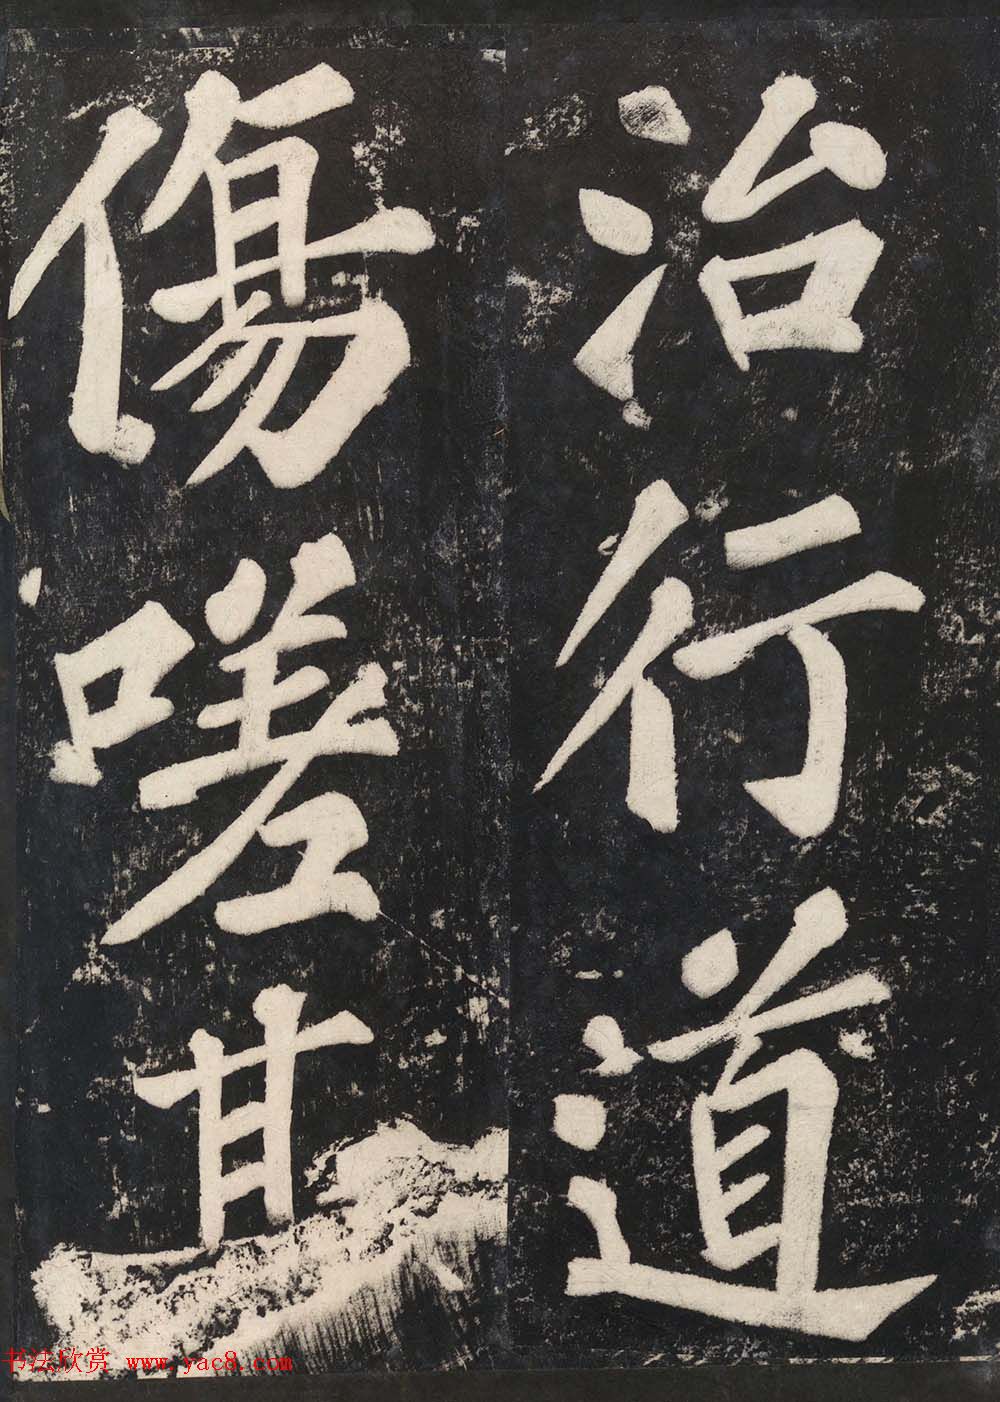 治行道
傷嗟其
书法欣赏 www.yac8.com